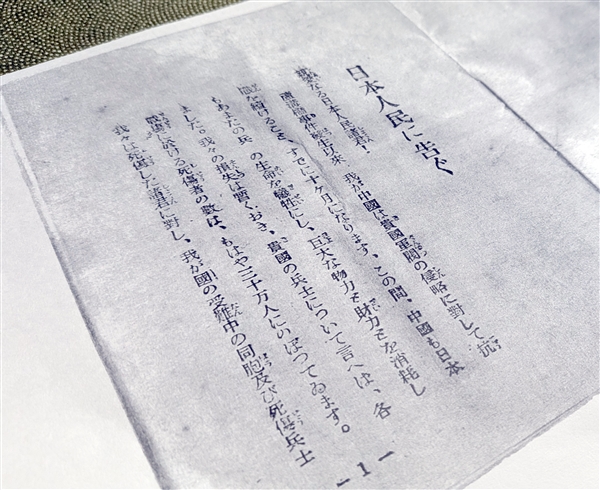 日本人民に告ぐ
なる日本人民諸君!
蘆溝橋事件發生以來 我が中國は貴國軍閥の侵略に對して抗
戰を續けること、すでに十ケ月になります。この間、中國も日本
もあまたの兵 の生命を犧牲にし、巨大な物力と財力とを消耗し
ました。我々の損失は暫くおき、貴國の兵士について言へば、各
戰場に於ける死傷者の數は、もはや三十万人にのぼつてゐます。
我々は死傷した諸君に對し、我が國の受難中の同胞及び死傷兵士
-1-